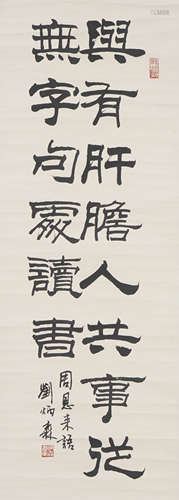 與有肝膽人共事從
無字句處讀書
周恩来語
劉炳森